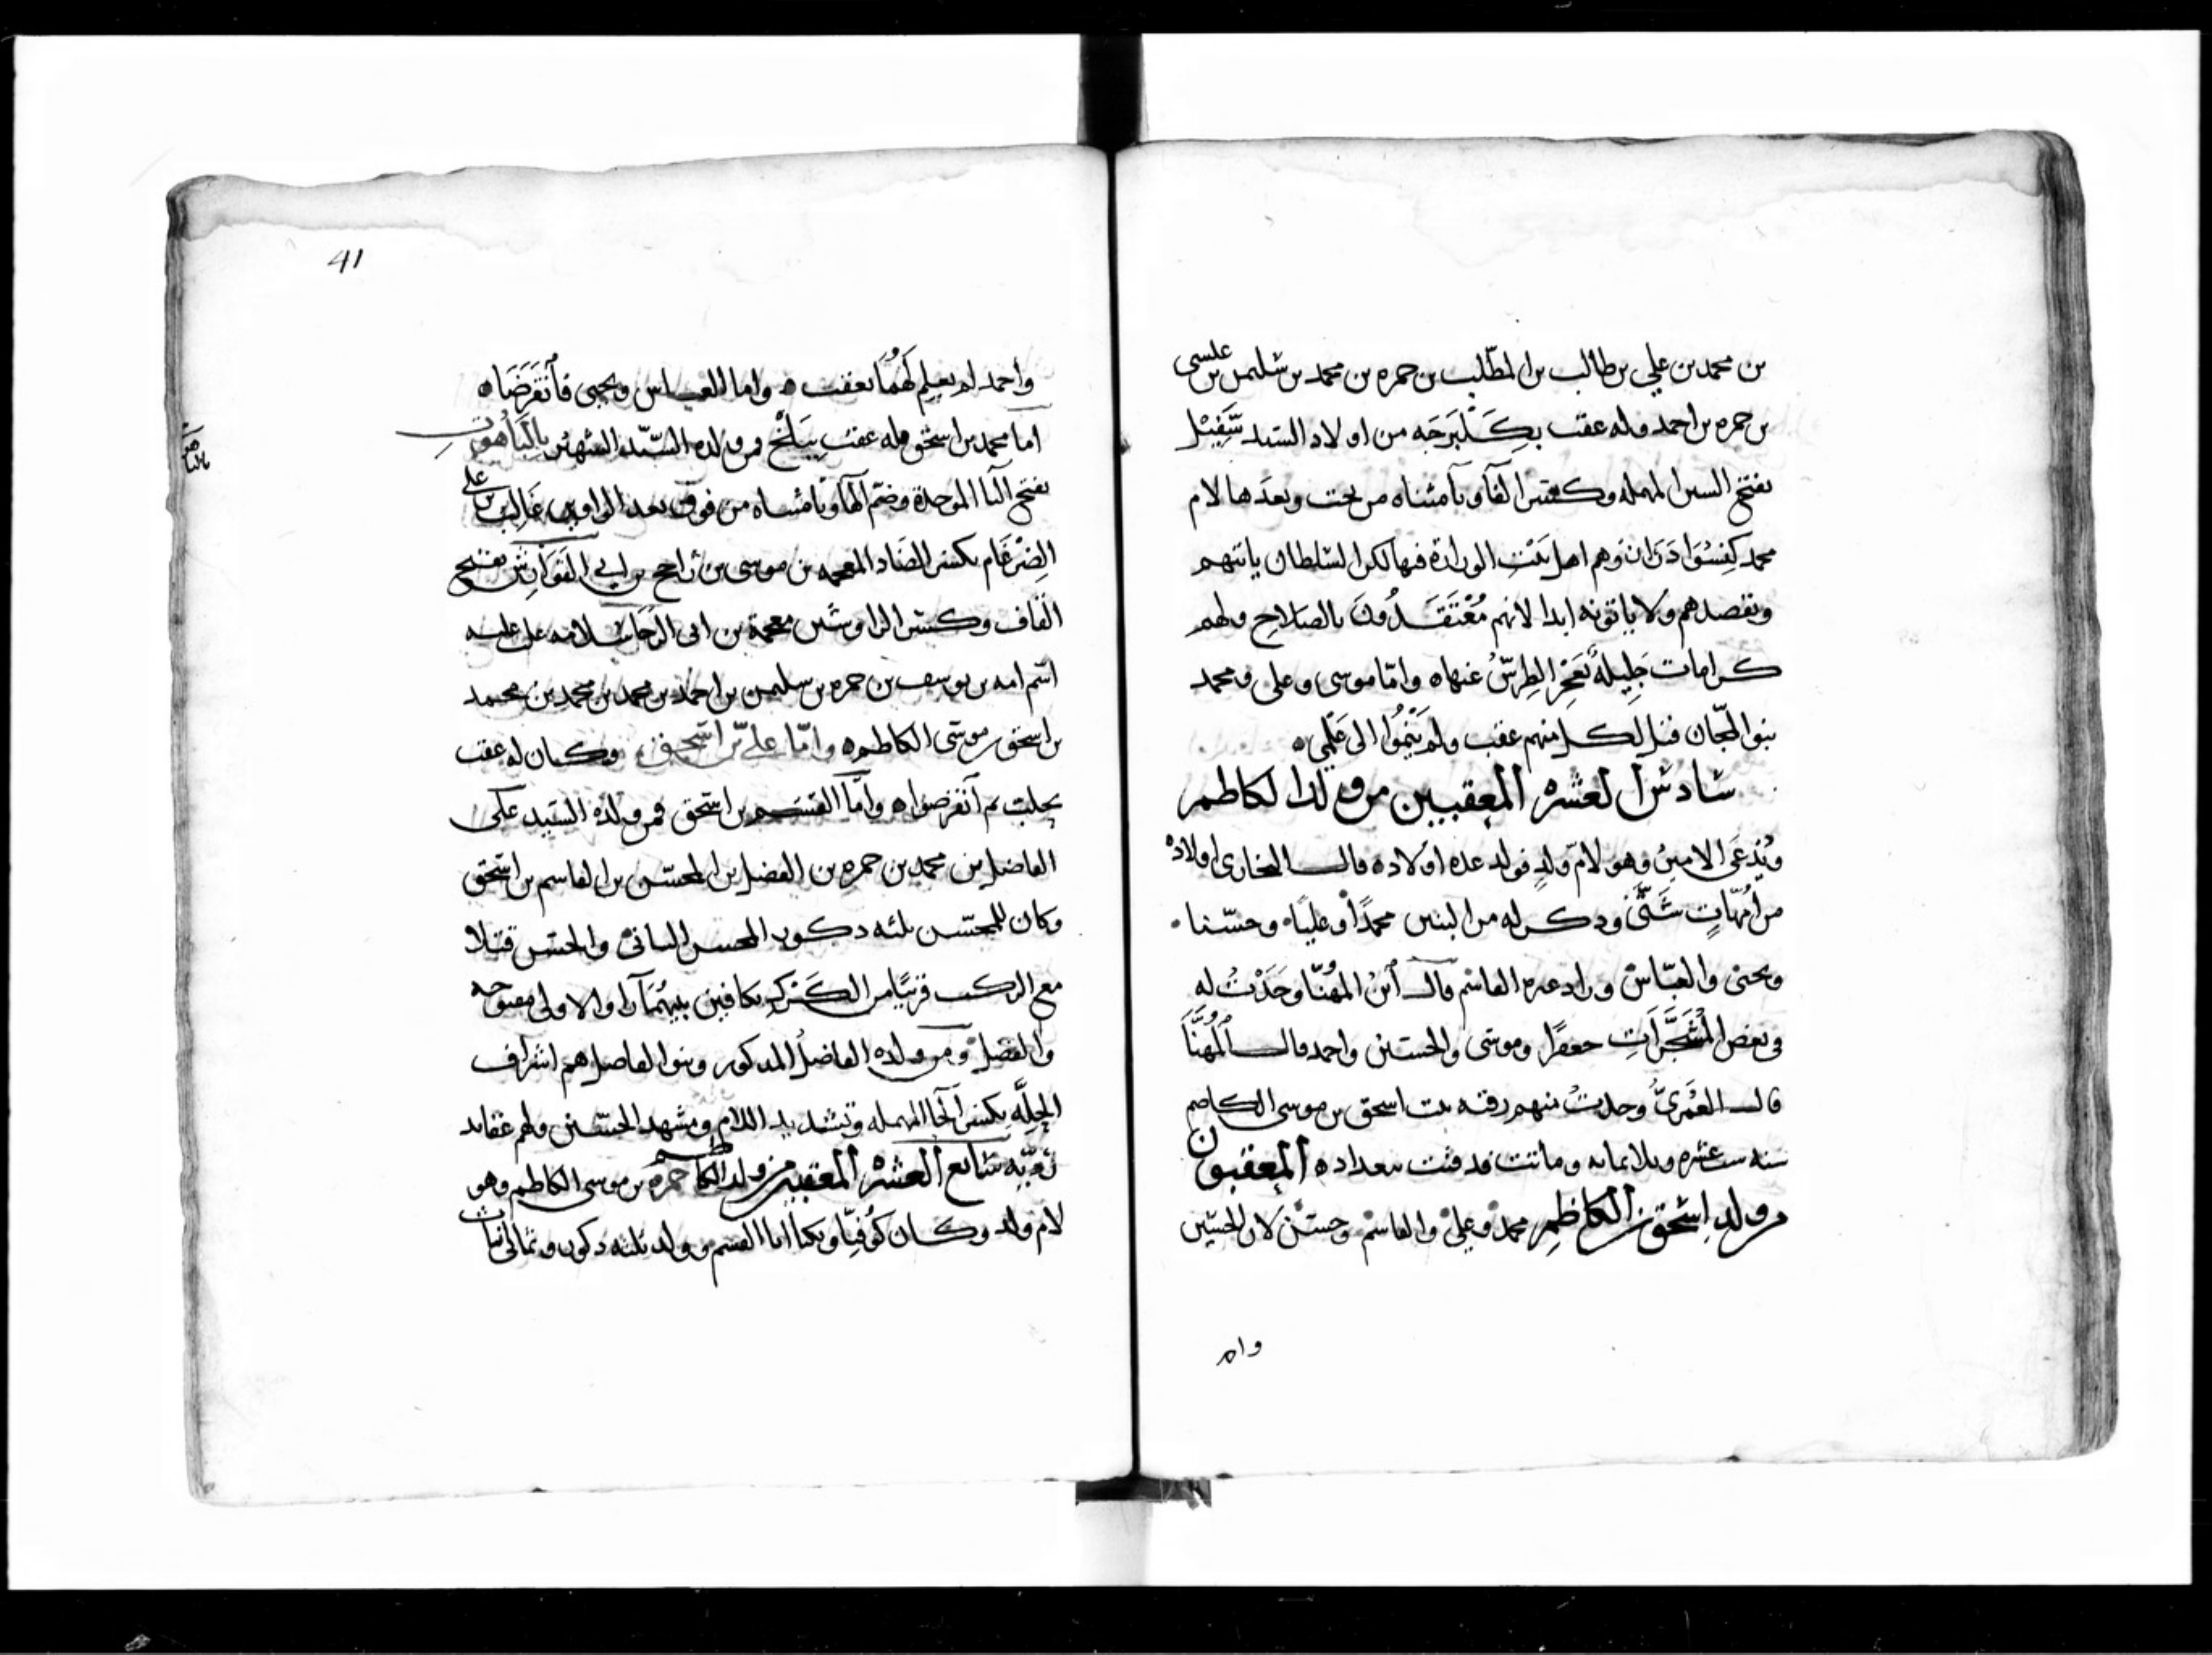 بن محمد بن علي بن طالب بن المطّلب بن حمزه بن محمد بن سليمن بن عيسى
بن حمزه بن احمد وله عقب بكلبرجه من اولاد السيد سَفِيْل
بفتح السين المهمله وكسر الفا ويا مثناه من تحت وبعدها لام
محمد وهم اهل بيت الوزارة فيها لكن السلطان ياتيهم
ويقصدهم ولا ياتونه ابدا لانهم مُعْتَقَدُونَ بالصلاح ولهم
كرامات جليلة يَعْجِز الطِرسُ عنها ه واما موسى وعلي ومحمد
بنو المجّان قيل لكل منهم عقب ولم يَنْمُوا الى عَلَمِي ه
سادس العشره المعقبين من ولد الكاظم
ويُدعَى الامين وهو لام ولدٍ فولد عده اولاده قال البخاري اولاده
من امّهاتٍ شَتَّى وذكر له من البنين محمدًا وعليًا وحسنا
ويحيى والعبّاس وزاد غيره القاسم قال ابنُ المُهنّا وَجَدْتُ له
في بعض المُشَجَّرَاتِ جعفرًا وموسى والحسين واحمد قال المُهنَّا
قال العُمَريُّ وجدتُ منهم رقيه بنت اسحق بن موسى الكاظم
سنه ست عشره وثلاثمائه وماتت فدفنت ببغداد ه المعقبون
من ولد اسحق بن الكاظم محمد وعلي والقاسم وحسن لان الحسين
واحمد
41
واحمد لم يعلم لهُما بعقب ه واما العباس ويحيى فانقَرَضَا ه
اما محمد بن اسحق فله عقب ببَلْخ ومن ولده السيّد الشهير بالبَاهُوت
بفتح البا الموحدة وضم الها وتا مثناه من فوق بعد الواو بن غالب بن علي
الضِرْغَام بكسر الضاد المعجمه بن موسى بن راجح بن ابي الفَوَارش بفتح
القاف وكسر الرا وشين معجمة بن ابي الرجا سلامه على عليه
اسم امه بن يوسف بن حمزه بن سليمن بن احمد بن محمد بن محمد بن محمد
بن اسحق بن موسى الكاظم ه وامّا علي بن اسحق وكان له عقب
بحلب ثم انقرضوا ه وامّا القسم بن اسحق فمن ولده السيد على
الفاضل بن محمد بن حمزه بن الفضل بن المحسّن بن القاسم بن اسحق
وكان للمحسّن ثلثه ذكور المحسن الثاني والحسن قتلا
مع الركب قريبًا من الكَرَك بكافين بينهُما را والاولى مفتوحه
والفضل ومن ولده الفاضل المذكور وبنو الفاضل هم اشراف
الحِلّه بكسر الحا المهمله وتشديد اللام ومشهد الحسين ولهم عقايد
سابع العشره المعقبين من ولد الكاظم حمزه بن موسى الكاظم وهو
لام ولد وكان كُوفيّا ويكنا ابا القسم وولد ثلثه ذكور وثماني بنات